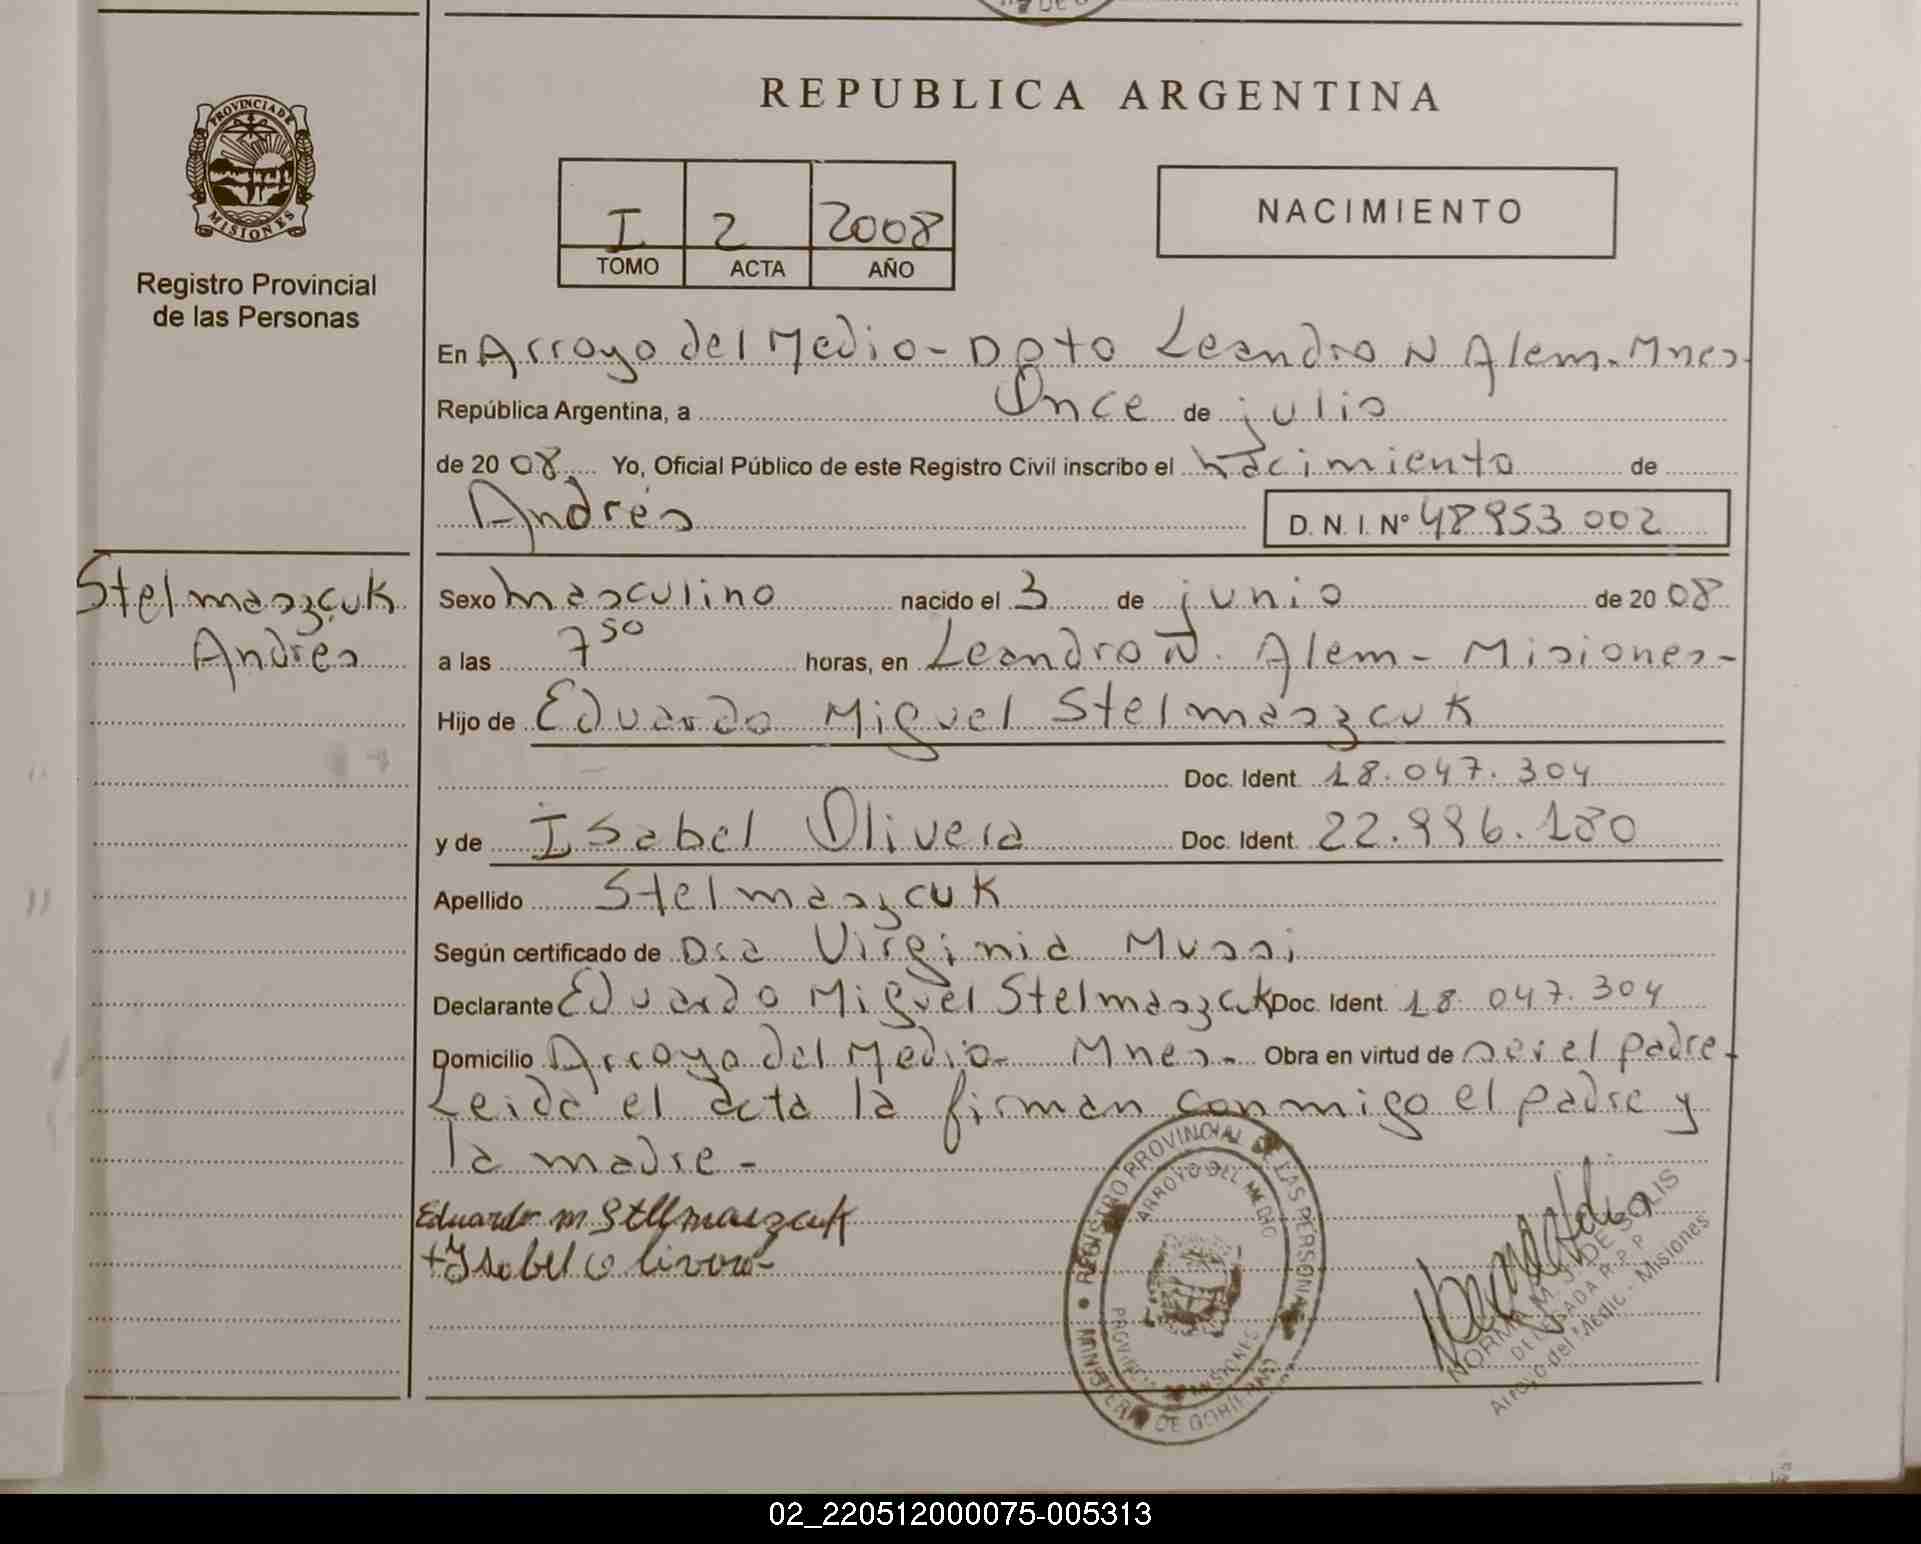 REPUBLICA ARGENTINA
PROVINCIA DE MISIONES
Registro Provincial
de las Personas
I 2 2008
TOMO ACTA AÑO
NACIMIENTO
En Arroyo del Medio - Dpto Leandro N Alem - Mnes -
República Argentina, a Once de julio
de 2008 Yo, Oficial Público de este Registro Civil inscribo el nacimiento de
Andrés D. N. I. Nº 48953 002
Stelmaszcuk
Andrés
Sexo masculino nacido el 3 de junio de 2008
a las 7 50 horas, en Leandro N. Alem - Misiones -
Hijo de Eduardo Miguel Stelmaszcuk
Doc. Ident. 18.047.304
y de Isabel Olivera Doc. Ident. 22.996.180
Apellido Stelmaszcuk
Según certificado de Dra Virginia Mussi
Declarante Eduardo Miguel Stelmaszcuk Doc. Ident. 18.047.304
Domicilio Arroyo del Medio - Mnes - Obra en virtud de ser el padre -
Leida el acta la firman conmigo el padre y
la madre -
Eduardo m Stelmaszcuk
+ Ysabel Olivera
REGISTRO PROVINCIAL DE LAS PERSONAS
ARROYO DEL MEDIO
PROVINCIA DE MISIONES
MINISTERIO DE GOBIERNO
NORMA M. J. DE SOLIS
DELEGADA R.P.P
Arroyo del Medio - Misiones
02_220512000075-005313